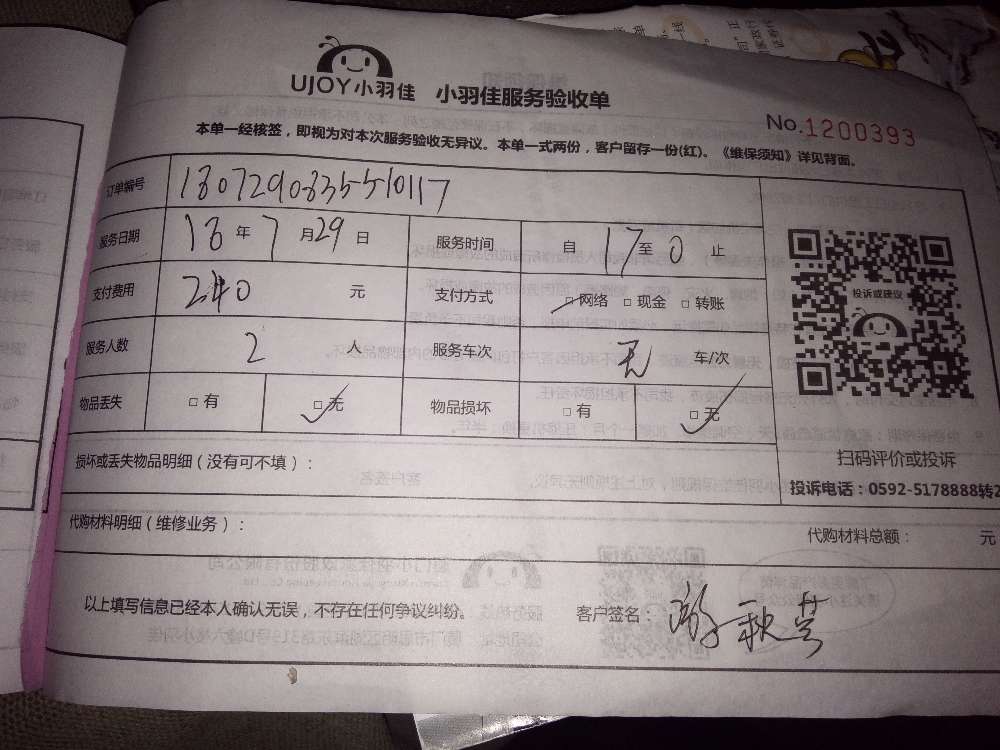 UJOY小羽佳 小羽佳服务验收单
No.1200393
本单一经核签，即视为对本次服务验收无异议。本单一式两份，客户留存一份(红)。《维保须知》详见背面。
订单编号 180729083555510117
服务日期 18 年 7 月 29 日 服务时间 自 17 至 0 止
支付费用 240 元 支付方式 □网络 □现金 □转账
服务人数 2 人 服务车次 无 车/次
物品丢失 □有 □无 物品损坏 □有 □无
投诉或建议
扫码评价或投诉
投诉电话：0592-5178888转2
损坏或丢失物品明细（没有可不填）：
代购材料明细（维修业务）： 代购材料总额： 元
以上填写信息已经本人确认无误，不存在任何争议纠纷。 客户签名：游秋芸